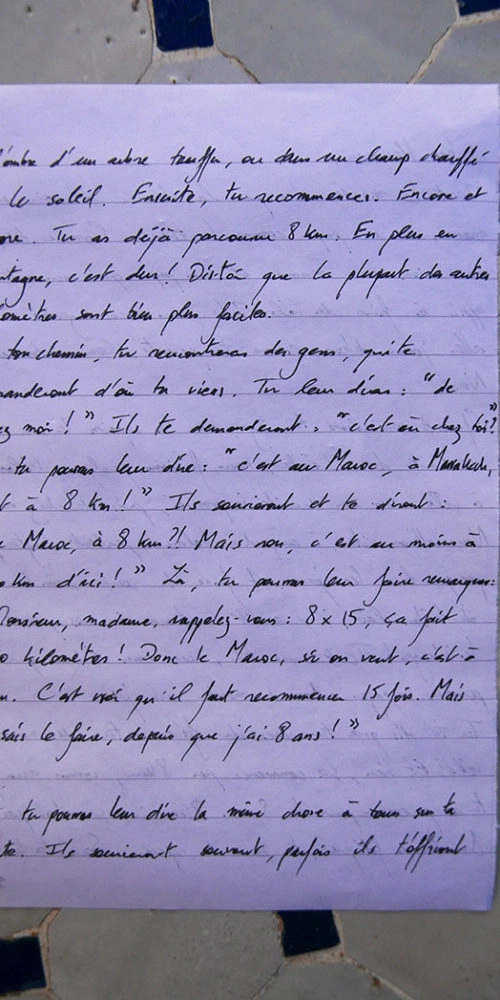 l'ombre d'un arbre touffu, ou dans un champ chauffé
le soleil. Ensuite, tu recommences. Encore et
ore. Tu as déjà parcouru 8 km. En plus en
ntagne, c'est dur! Distoi que la plupart des autres
omètres sont bien plus faciles.
ton chemin, tu rencontreras des gens, qui te
manderont d'où tu viens. Tu leur diras : "de
ez moi!" Ils te demanderont : "c'est où chez toi?"
tu pourras leur dire : "c'est au Maroc, à Marrakech,
t à 8 km!" Ils souriront et te diront :
Maroc, à 8 km?! Mais non, c'est au moins à
0 km d'ici!" Là, tu pourras leur faire remarquer:
Monsieur, madame, rappelez-vous : 8 x 15, ça fait
0 kilomètres! Donc le Maroc, si on veut, c'est à
m. C'est vrai qu'il faut recommencer 15 fois. Mais
sais le faire, depuis que j'ai 8 ans!"
tu pourras leur dire la même chose à tous sur ta
te. Ils souriront souvent, parfois ils t'offriront